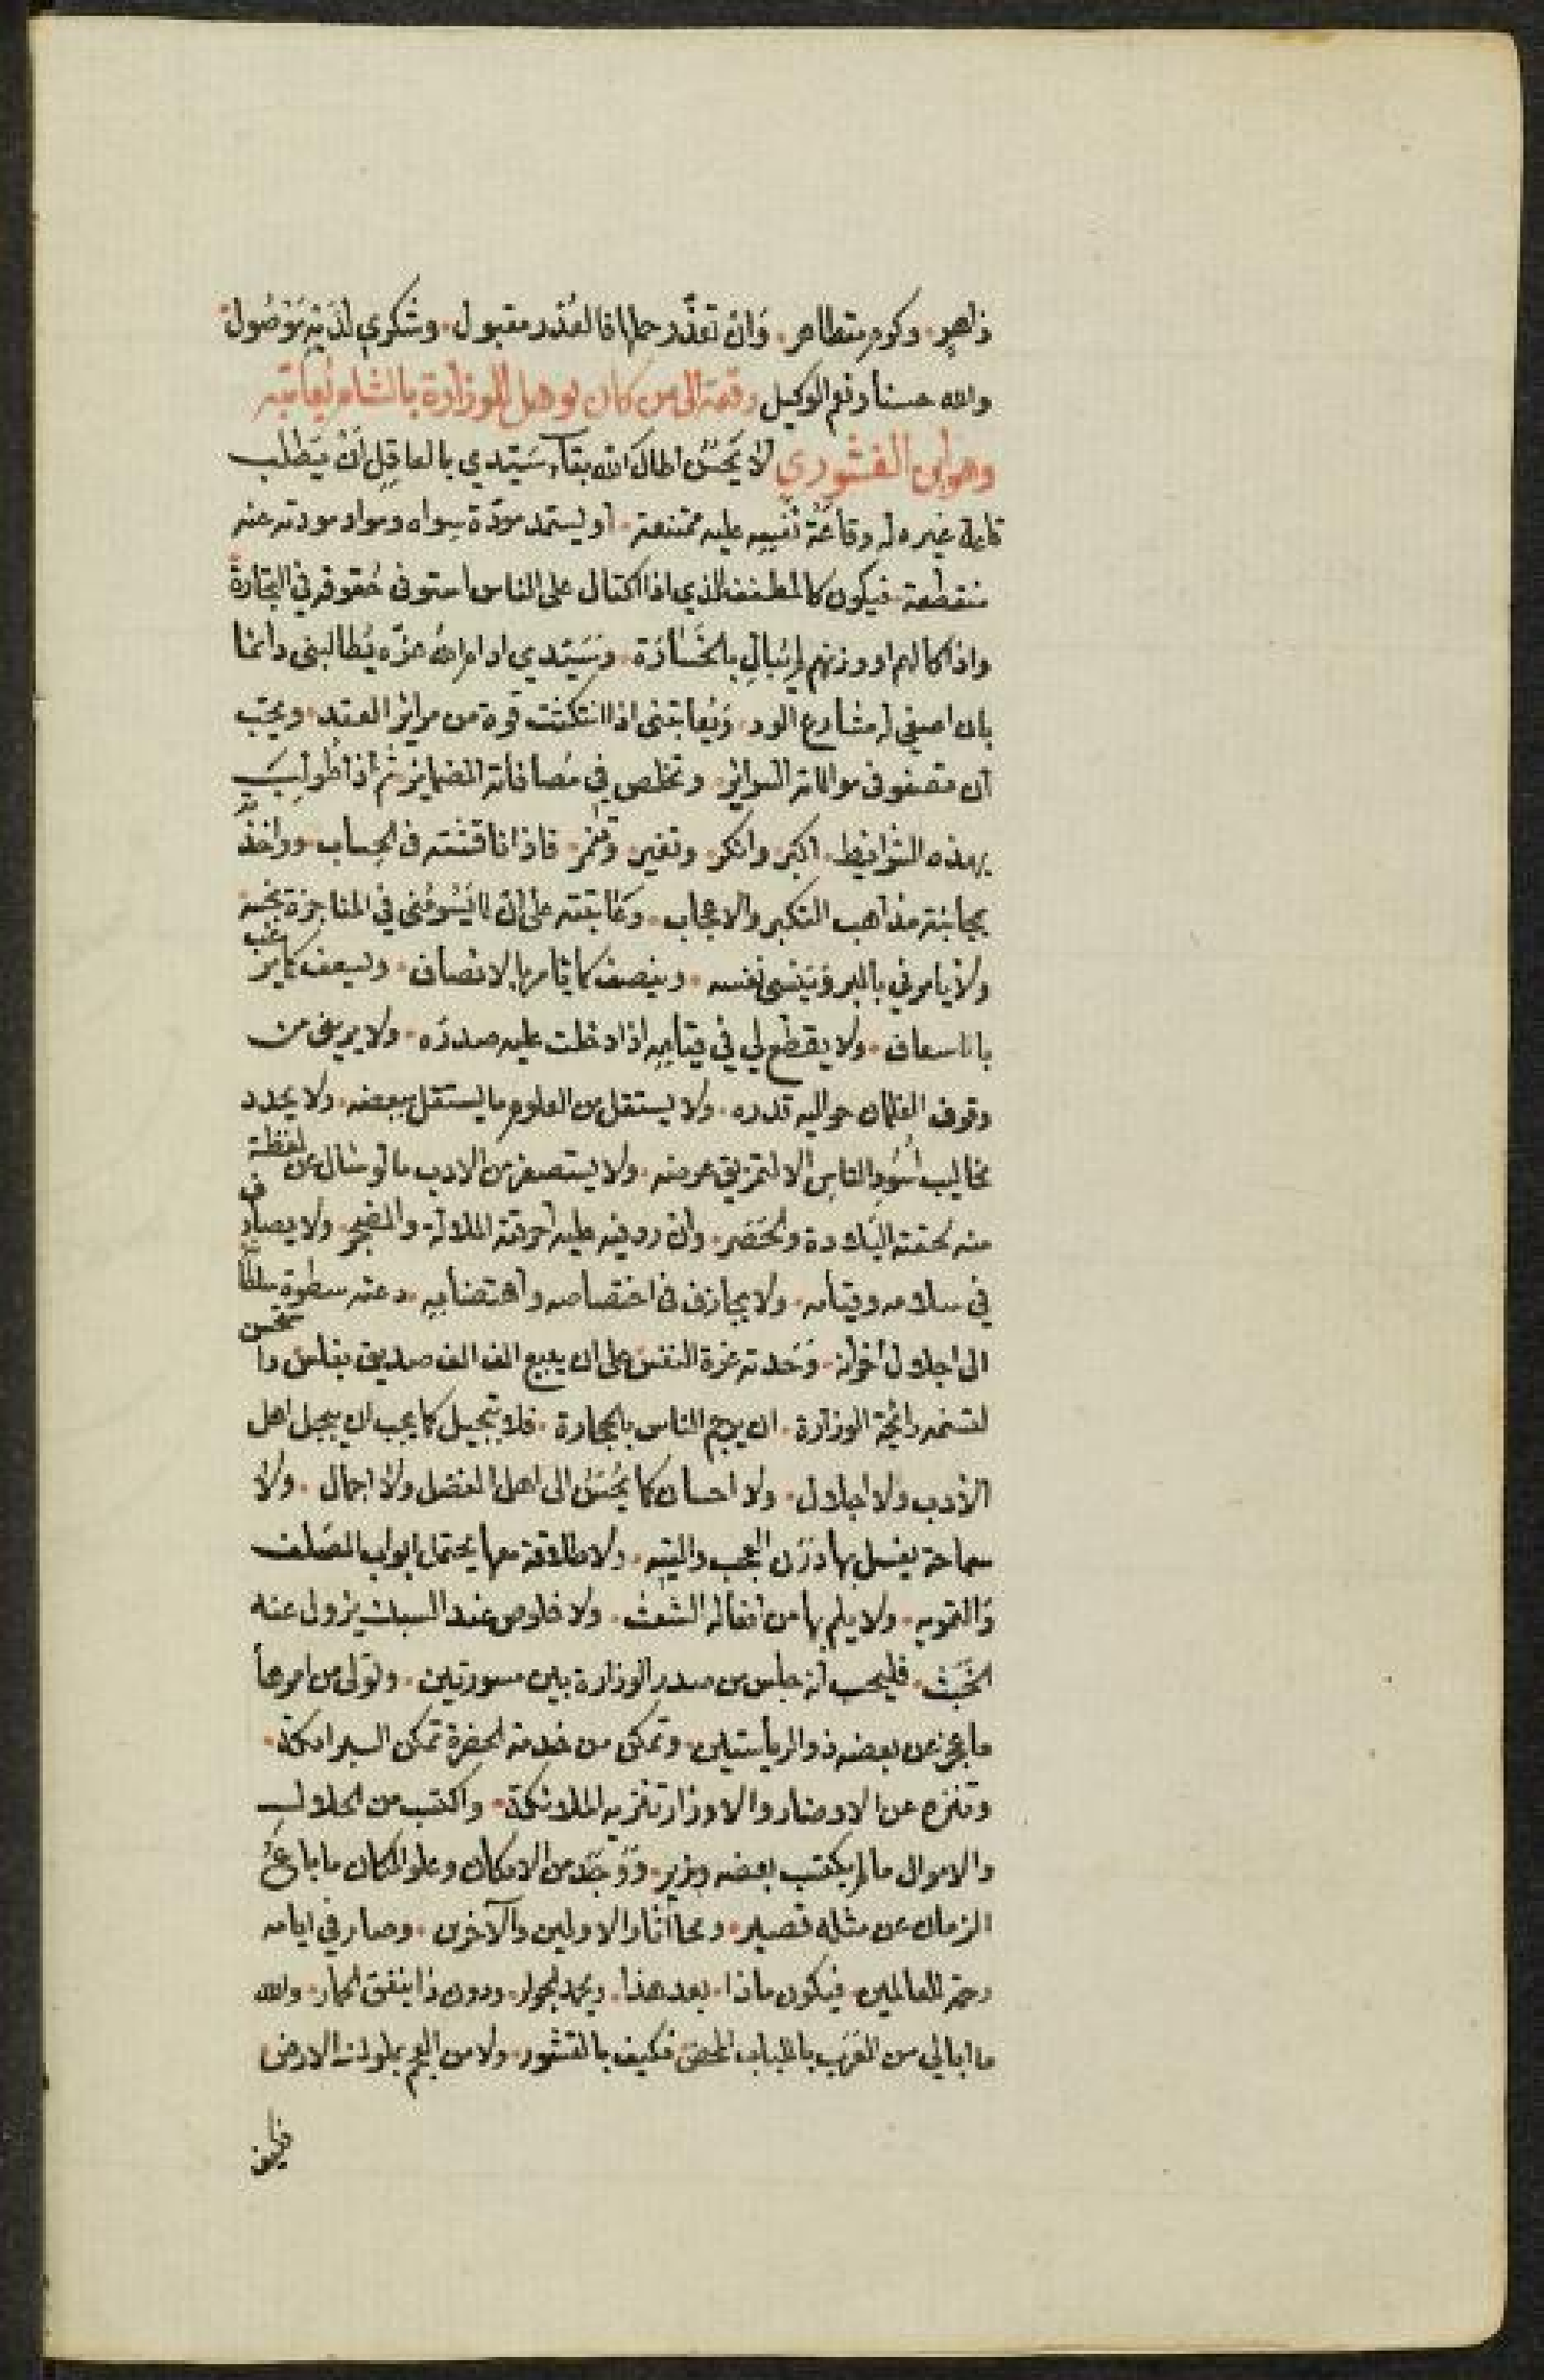 زاهر. وكرم متظاهر. وَان تعذّر حملها فالعُذر مقبول. وشكري لدَيْهِ مَوْصُول.
والله حسبنا ونعم الوكيل رقعة الى من كان يوهل للوزارة بالشام يُعاتبه
وهو ابن القشوري لا يَحسُن اطال الله بقآء سَيّدي بالعاقِل أنْ يَتطلّب
غيره له وطاعَة نفسه عليه ممتنعة. أو يستمد مودّة سِواه ومواد مودته عنه
منقطعة. فيكون كالمطفف الذي اذا اكتال على الناس استوفى حُقوقه في التجَارة
واذا كالهم او وزنهم لم يُبالِ بالخَسَارَة. وَسَيّدي ادام الله عزّه يُطالبني دائمًا
بان اصفي له مشارع الود. وَيُعاتبني اذا انتكثت قوة من مرائر العقد. ويحب
أن تصفو في موالاته السرائر. وتخلص في مُصافاته الضمائر ثم أذا طُولِبَ
بهذه الشرائط. اكبَر وانكر. وتغير. وتَنمّر. فاذا ناقشته في الحِساب. وواخذته
بمجانبة مذاهب التكبر والاعجاب. وَعَاتبته على ان لا يَسُومُني في المتاجرة بخسه
ولا يأمرني بالبر وَيَنسى نفسه. وينصف كما يأمر بالانصاف. ويسعف كما يرغب
بالاسعاف. ولا يقطع لي في قيامِهِ اذا دخلت عليه صدرَه. ولا يريني من
وقوف الغلمان حواليه قدره. ولا يستقل من العلوم ما ليستقل ببعضه. ولا يحدد
مخاليب اُسُودِ الناسِ الا لتمزيق عرضه. ولا يستصغر من الادب ما لو سُال عن لفظة
منه لحقته البَلادة والحَصَر. وان روفِه عليه احرقته الملالة والضجر. ولا يصادف
في سلامه وقيامه. ولا يجازف في اختصاصه واهتضامِهِ. دعته سطوة سلطانه
الى اجلال أخوانه. وَحَدته عزة النفس على ان يبيع الف الف صديق بفلس واستحسن
لتشممه رائحة الوزارة. ان يرجم الناس بالحجارة. فلا تبجيل كما يجب ان يبجل اهل
الأدب ولا اجلال. ولا احسان كما يُحسَن الى اهل الفضل ولا اجمال. ولا
سماحة يغسل بها دَرَن العجب والتيه. ولا طلاقة معها يحتمل ابواب الصَلف
وَالتمويه. ولا يلم بها من افعاله الشَعث. ولا خلوص عند السبك يزول عنه
الخَبَث. فليحسب أنه جلس من صدر الوزارة بين مسورتين. وتولى من امرها
ما عجز عن بعضه ذو الرياستين. وتمكن من خدمة الحضرة تمكن البرامكة.
وتنزه عن الاوضار والاوزار تنزيه الملائكة. واكتسب من الجلال
والاموال ما لم يكتسب بعضه وزير. وَوَجَدَ من الامكان وعلو المكان ما باعُ
الزمان عن مثله قصير. ومحا آثار الاولين والآخرين. وصار في ايامه
رحمة للعالمين. فيكون ماذا. بعد هذا. ويحمد الجوار. ودون ذا ينفق الحمار. والله
ما ابالي من العَرَب باللباب المحض. فكيف بالقشور. ولا من العجم بملوك الارض
فكيف